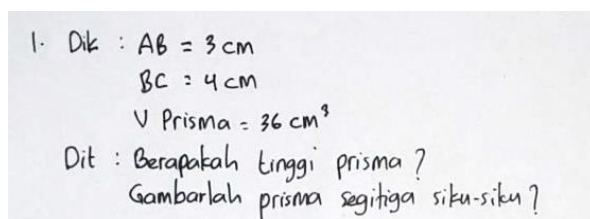 1. Dik : AB = 3 cm
BC = 4 cm
V Prisma = 36 cm³
Dit : Berapakah tinggi prisma ?
Gambarlah prisma segitiga siku-siku ?